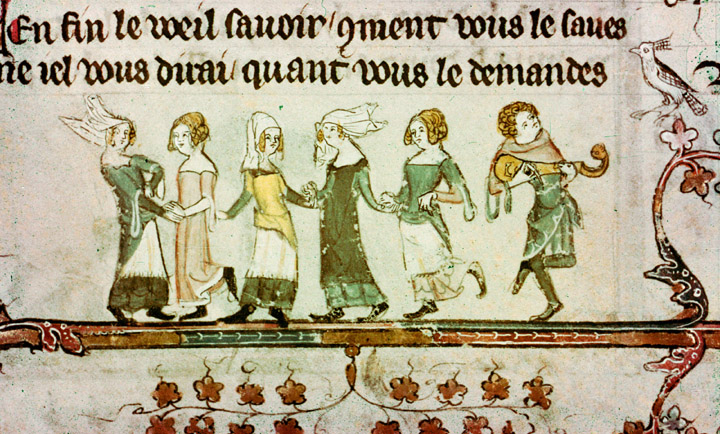 En fin le weil sauoir / ꝯment vous le saues
ne iel vous dirai / quant vous le demandes